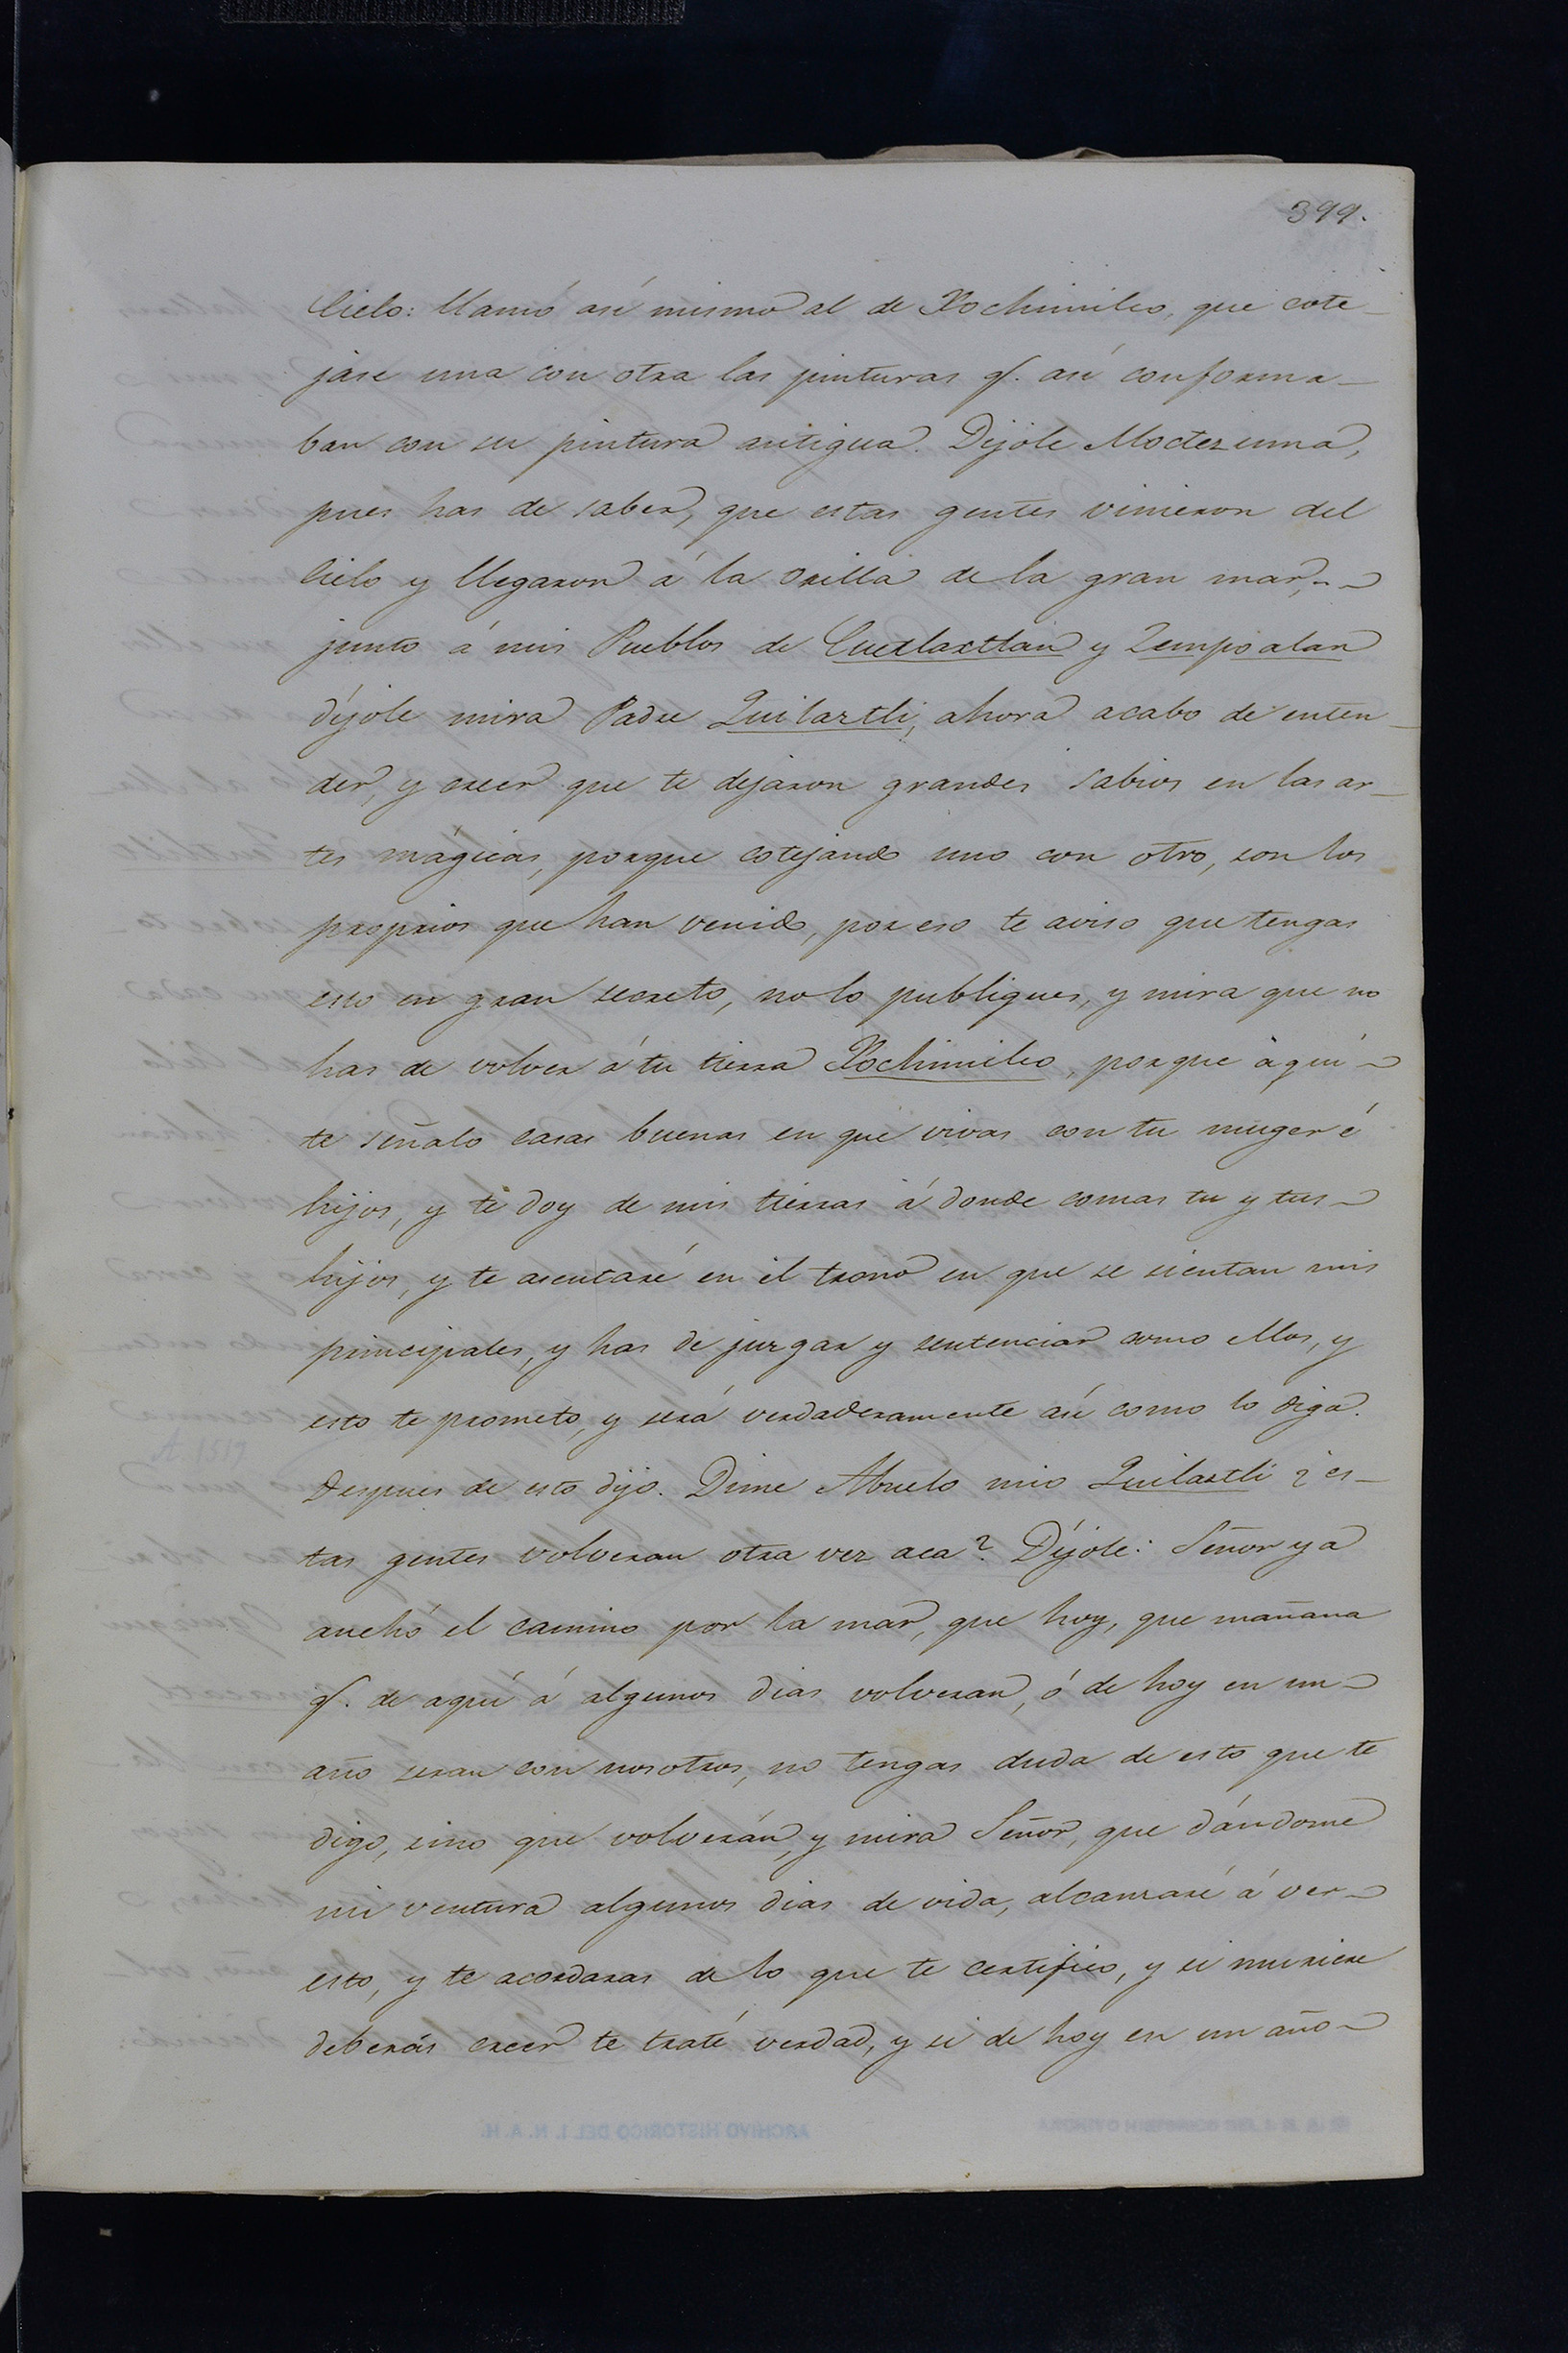 399.
Cielo: llamó así mismo al de Xochimilco, que cote-
jase una con otra las pinturas q. así conforma-
ban con su pintura antigua. Dijole Moctezuma,
pues has de saber, que estas gentes vinieron del
Cielo y llegaron á la orilla de la gran mar,
junto á mis Pueblos de Cuetlaxtlan y Zempoalan
díjole mira Padre Quilaztli, ahora acabo de enten-
der, y creer que te dejaron grandes sabios en las ar-
tes mágicas, porque cotejando uno con otro, son los
proprios que han venido, por eso te aviso que tengas
esto en gran secreto, no lo publiques, y mira que no
has de volver á tu tierra Xochimilco, porque aquí
te señalo casas buenas en que vivas con tu muger é
hijos, y te doy de mis tierras á donde comas tu y tus
hijos, y te asentaré en el trono en que se sientan mis
principales, y has de juzgar y sentenciar como ellos, y
esto te prometo, y será verdaderamente así como lo diga.
Despues de esto dijo. Dime Abuelo mio Quilaztli ¿es-
tas gentes volveran otra vez aca? Díjole: Señor ya
anchó el camino por la mar, que hoy, que mañana
q. de aquí á algunos dias volveran, ó de hoy en un
año seran con nosotros, no tengas duda de esto que te
digo, sino que volverán, y mira Señor, que dándome
mi ventura algunos dias de vida, alcanzaré á ver
esto, y te acordaras de lo que te certifico, y si muriere
deberás creer te traté verdad, y si de hoy en un año
ARCHIVO HISTORICO DEL I. N. A. H.